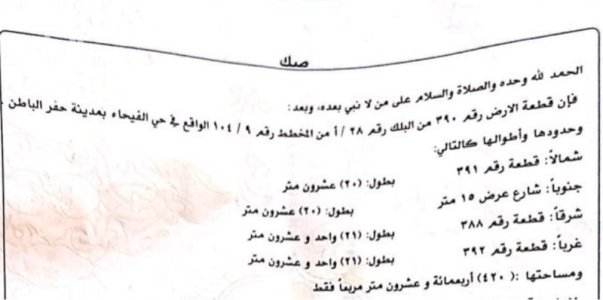 صك
الحمد لله وحده والصلاة والسلام على من لا نبي بعده، وبعد:
فإن قطعة الارض رقم ٣٩٠ من البلك رقم ٢٨ / أ من المخطط رقم ٩ / ١٠٤ الواقع في حي الفيحاء بمدينة حفر الباطن .
وحدودها وأطوالها كالتالي:
شمالاً: قطعة رقم ٣٩١ بطول: (٢٠) عشرون متر
جنوباً: شارع عرض ١٥ متر بطول: (٢٠) عشرون متر
شرقاً: قطعة رقم ٣٨٨ بطول: (٢١) واحد و عشرون متر
غرباً: قطعة رقم ٣٩٢ بطول: (٢١) واحد و عشرون متر
ومساحتها :( ٤٢٠) أربعمائة و عشرون متر مربعاً فقط